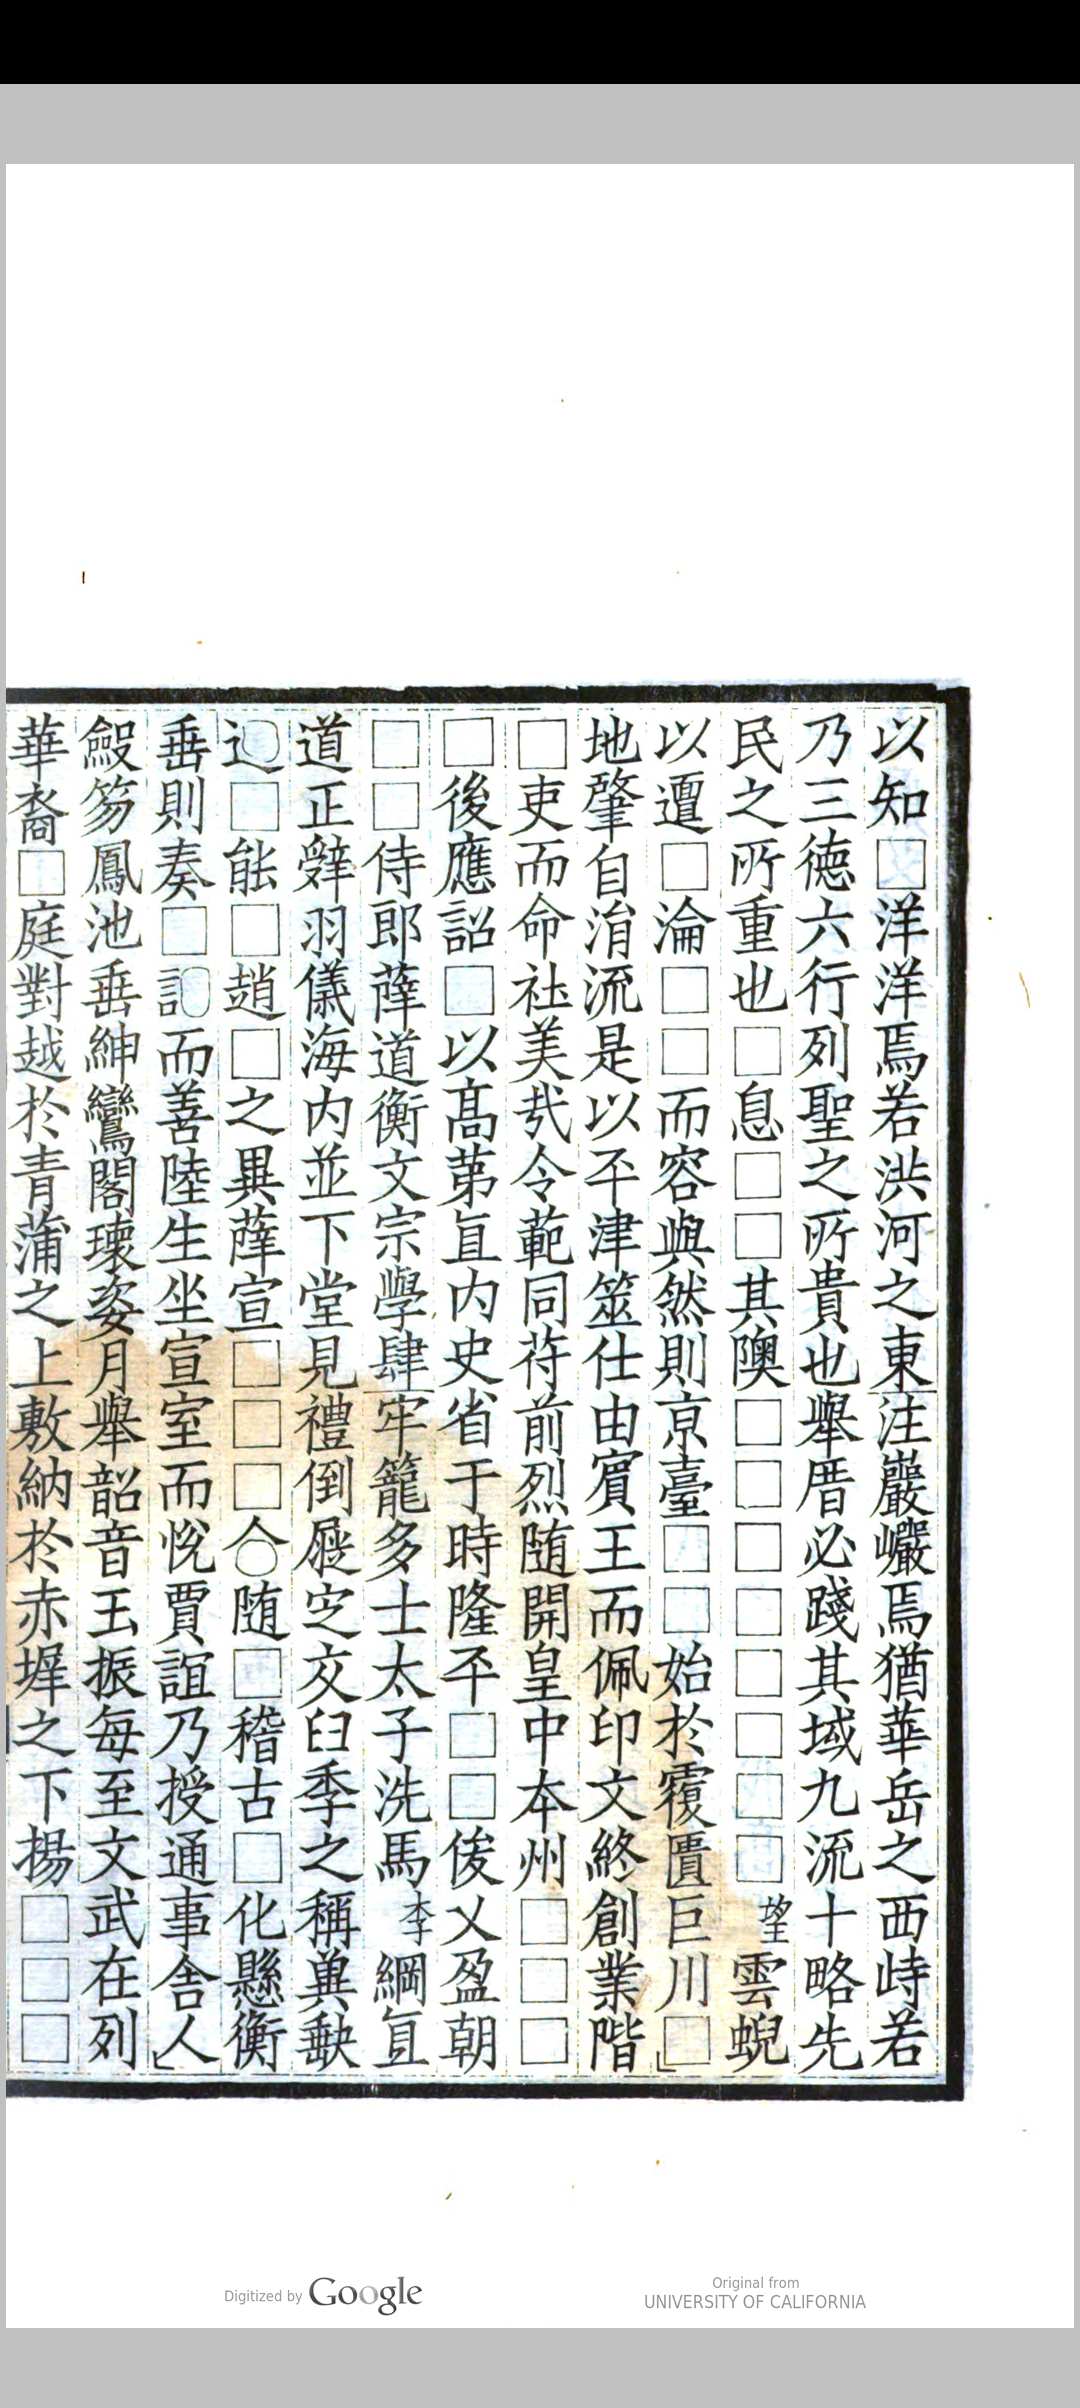 以知□洋洋焉若洪河之東注巖巖焉猶華岳之西峙若
乃三德六行列聖之所貴也舉厝必踐其域九流十略先
民之所重也□息□□其隩□□□□□□□□望雲蜺
以邅□淪□□而容與然則京臺□□始於覆匱巨川□
地肇自涓流是以平津筮仕由賓王而佩印文終創業階
□吏而命社美哉令範同苻前烈随開皇中本州□□□
□後應詔□以高第直内史省于時隆平□□俊乂盈朝
□□侍郎薛道衡文宗學肆牢籠多士太子洗馬李綱直
道正辭羽儀海内並下堂見禮倒屣定交臼季之稱冀缺
□能□趙□之異薛宣□□□随□稽古□化懸衡
垂則奏□而善陸生坐宣室而悅賈誼乃授通事舍人
笏鳳池垂紳鸞閣瓌姿月舉韶音玉振每至文武在列
華裔□庭對越於青蒲之上敷納於赤墀之下揚□□□
Digitized by Google
Original from
UNIVERSITY OF CALIFORNIA